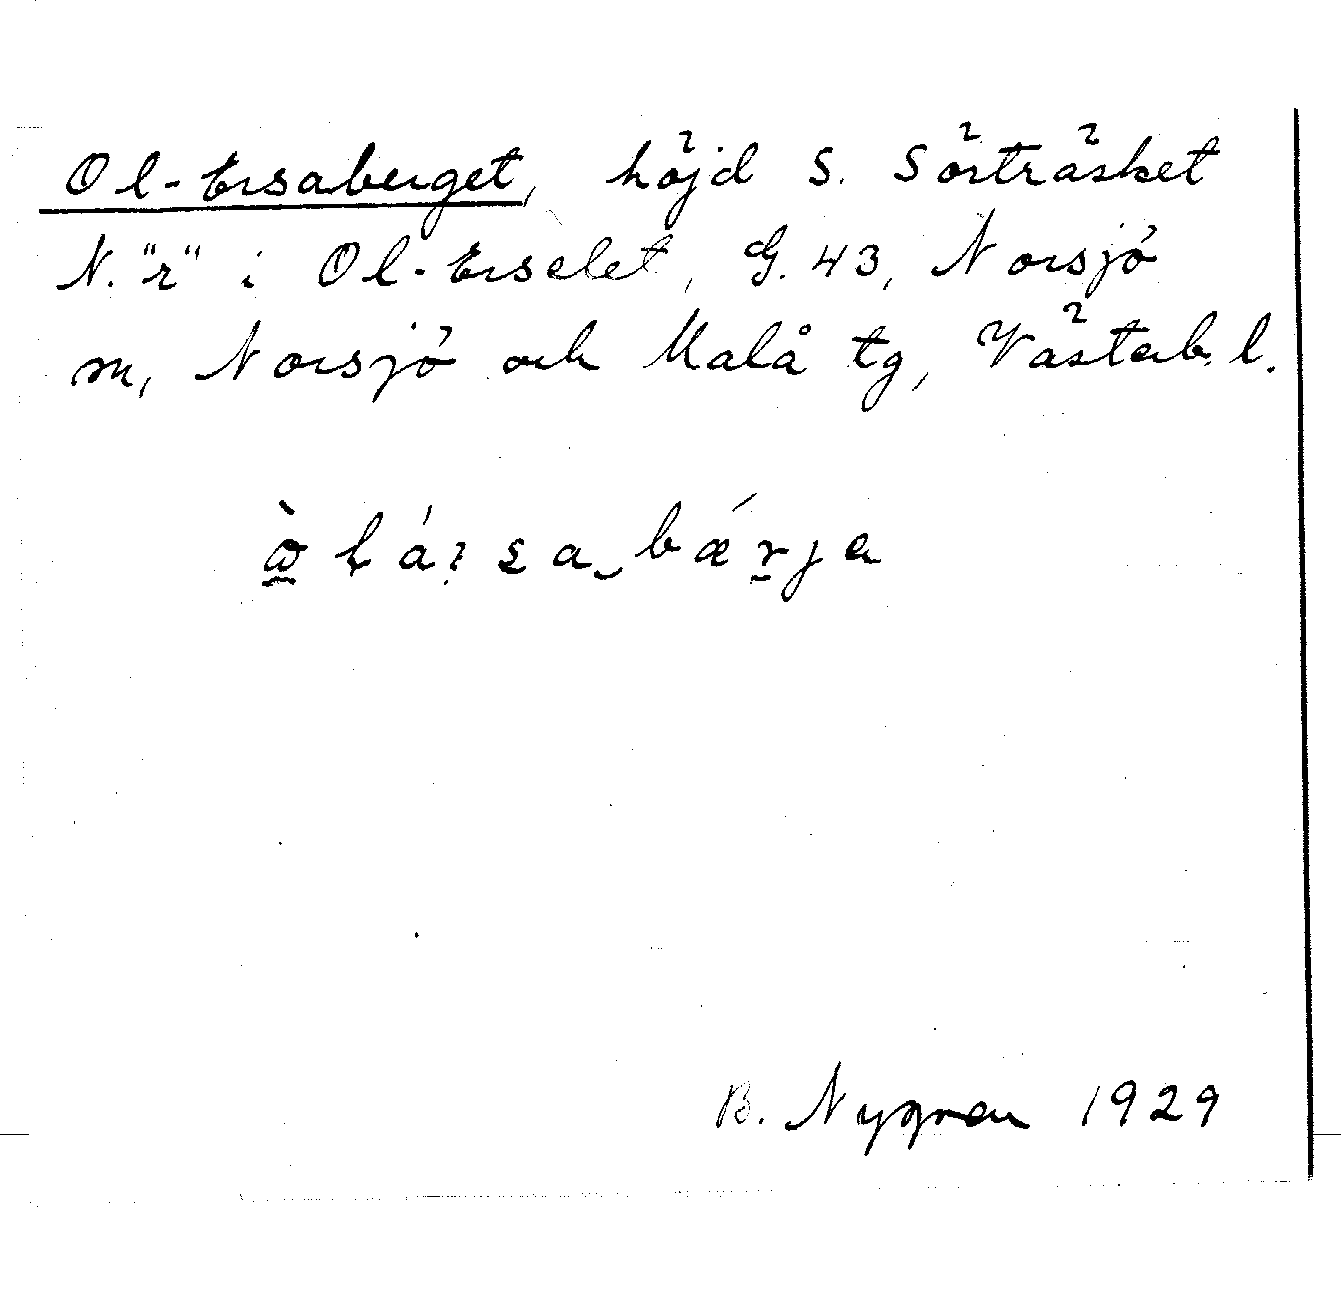 Ol-Ersaberget, höjd S. Sörträsket
N. "r" i Ol-Erselet, G. 43, Norsjö
m, Norsjö och Malå tg, Västerb. l.
B. Nygren 1929